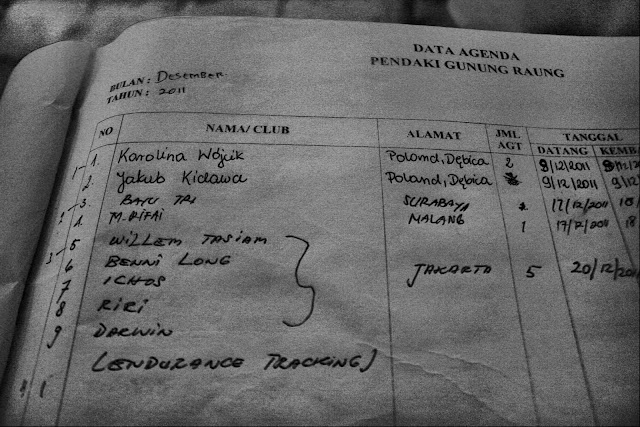 DATA AGENDA
PENDAKI GUNUNG RAUNG
BULAN : Desember
TAHUN : 2011
NO NAMA/ CLUB ALAMAT JML AGT TANGGAL
DATANG KEMBA
1. Karolina Wójcik Poland, Dębica 2 9/12/2011
2. Jakub Kidawa Poland, Dębica 9/12/2011 9/12/201
3 BAYU TRI SURABAYA 17/12/2011 18
4. M. RIFAI MALANG 1 17/12/2011 18
5 WILLEM TASIAM
6 BENNI LONG JAKARTA 5 20/12/2011
7 ICHOS
8 RIRI
9 DARWIN
(ENDURANCE TRACKING)